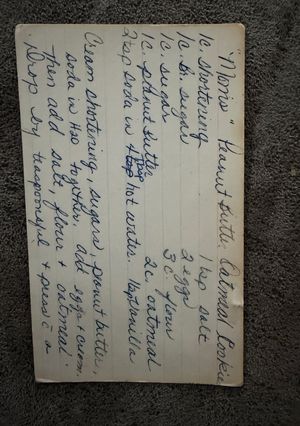 "Mom's" Peanut Butter Oatmeal Cookie
1c. shortening 1 tsp salt
1c. br. sugar 2 eggs
1c. sugar 3c. flour
1c. peanut butter 2c. oatmeal
2 tsp soda in hot water. 1 tsp vanilla
Cream shortening, sugars, peanut butter,
soda in H2O together. add eggs + cream.
then add salt, flour + oatmeal.
Drop by teaspoonful + press c̄ a